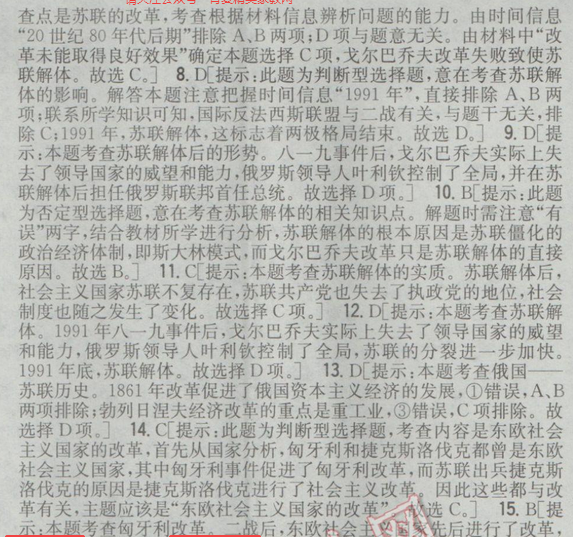 查点是苏联的改革,考查根据材料信息辨析问题的能力。由时间信息
“20世纪80年代后期”排除A、B两项;D项与题意无关。由材料中“改
革未能取得良好效果”确定本题选择C项,戈尔巴乔夫改革失败致使苏
联解体。故选C。] 8. D[提示:此题为判断型选择题,意在考查苏联解
体的影响。解答本题注意把握时间信息“1991年”,直接排除A、B两
项;联系所学知识可知,国际反法西斯联盟与二战有关,与题干无关,排
除C;1991年,苏联解体,这标志着两极格局结束。故选D。] 9. D[提
示:本题考查苏联解体后的形势。八一九事件后,戈尔巴乔夫实际上失
去了领导国家的威望和能力,俄罗斯领导人叶利钦控制了全局,并在苏
联解体后担任俄罗斯联邦首任总统。故选择D项。] 10. B[提示:此题
为否定型选择题,意在考查苏联解体的相关知识点。解题时需注意“有
误”两字,结合教材所学进行分析,苏联解体的根本原因是苏联僵化的
政治经济体制,即斯大林模式,而戈尔巴乔夫改革只是苏联解体的直接
原因。故选B。] 11. C[提示:本题考查苏联解体的实质。苏联解体后,
社会主义国家苏联不复存在,苏联共产党也失去了执政党的地位,社会
制度也随之发生了变化。故选择C项。] 12. D[提示:本题考查苏联解
体。1991年八一九事件后,戈尔巴乔夫实际上失去了领导国家的威望
和能力,俄罗斯领导人叶利钦控制了全局,苏联的分裂进一步加快。
1991年底,苏联解体。故选择D项。] 13. D[提示:本题考查俄国——
苏联历史。1861年改革促进了俄国资本主义经济的发展,①错误,A、B
两项排除;勃列日涅夫经济改革的重点是重工业,③错误,C项排除。故
选择D项。] 14. C[提示:此题为判断型选择题,考查内容是东欧社会
主义国家的改革,首先从国家分析,匈牙利和捷克斯洛伐克都曾是东欧
社会主义国家,其中匈牙利事件促进了匈牙利改革,而苏联出兵捷克斯
洛伐克的原因是捷克斯洛伐克进行了社会主义改革。因此这些都与改
革有关,主题应该是“东欧社会主义国家的改革”。故选C。] 15. B[提
示:本题考查匈牙利改革。二战后,东欧社会主义国家先后进行了改革,